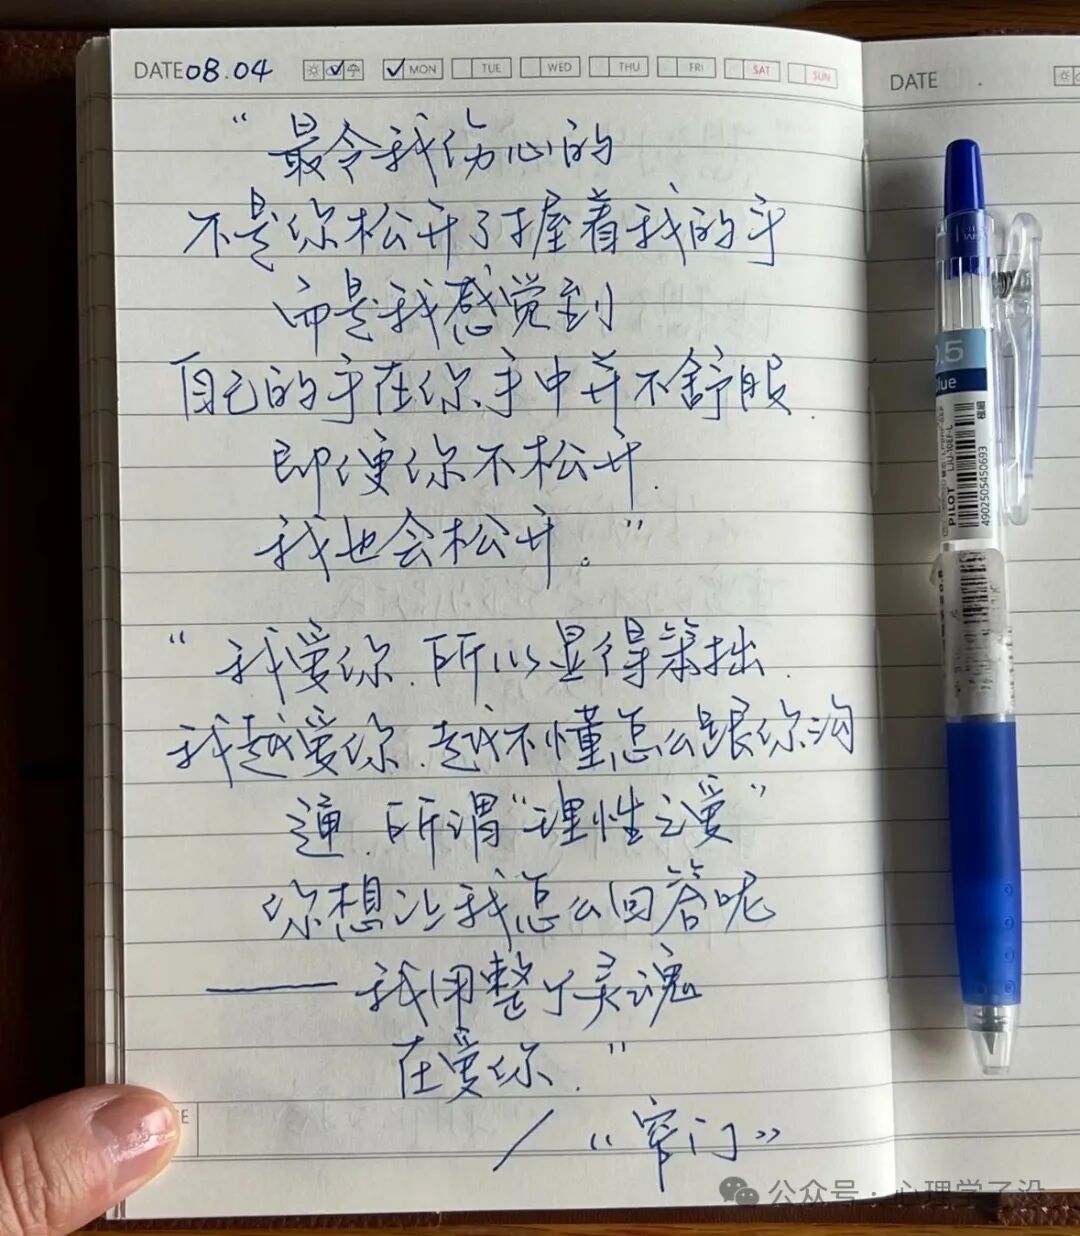 DATE 08.04 MON TUE WED THU FRI SAT SUN
DATE
“最令我伤心的
不是你松开了握着我的手
而是我感觉到
自己的手在你手中并不舒服.
即便你不松开.
我也会松开。”
“我爱你.所以显得笨拙.
我越爱你.越不懂怎么跟你沟
通.所谓“理性之爱”
你想让我怎么回答呢
——我用整个灵魂
在爱你.”
/《窄门》
0.5
PILOT LJU-10EF-L
4902505450693
公众号·心理学了没